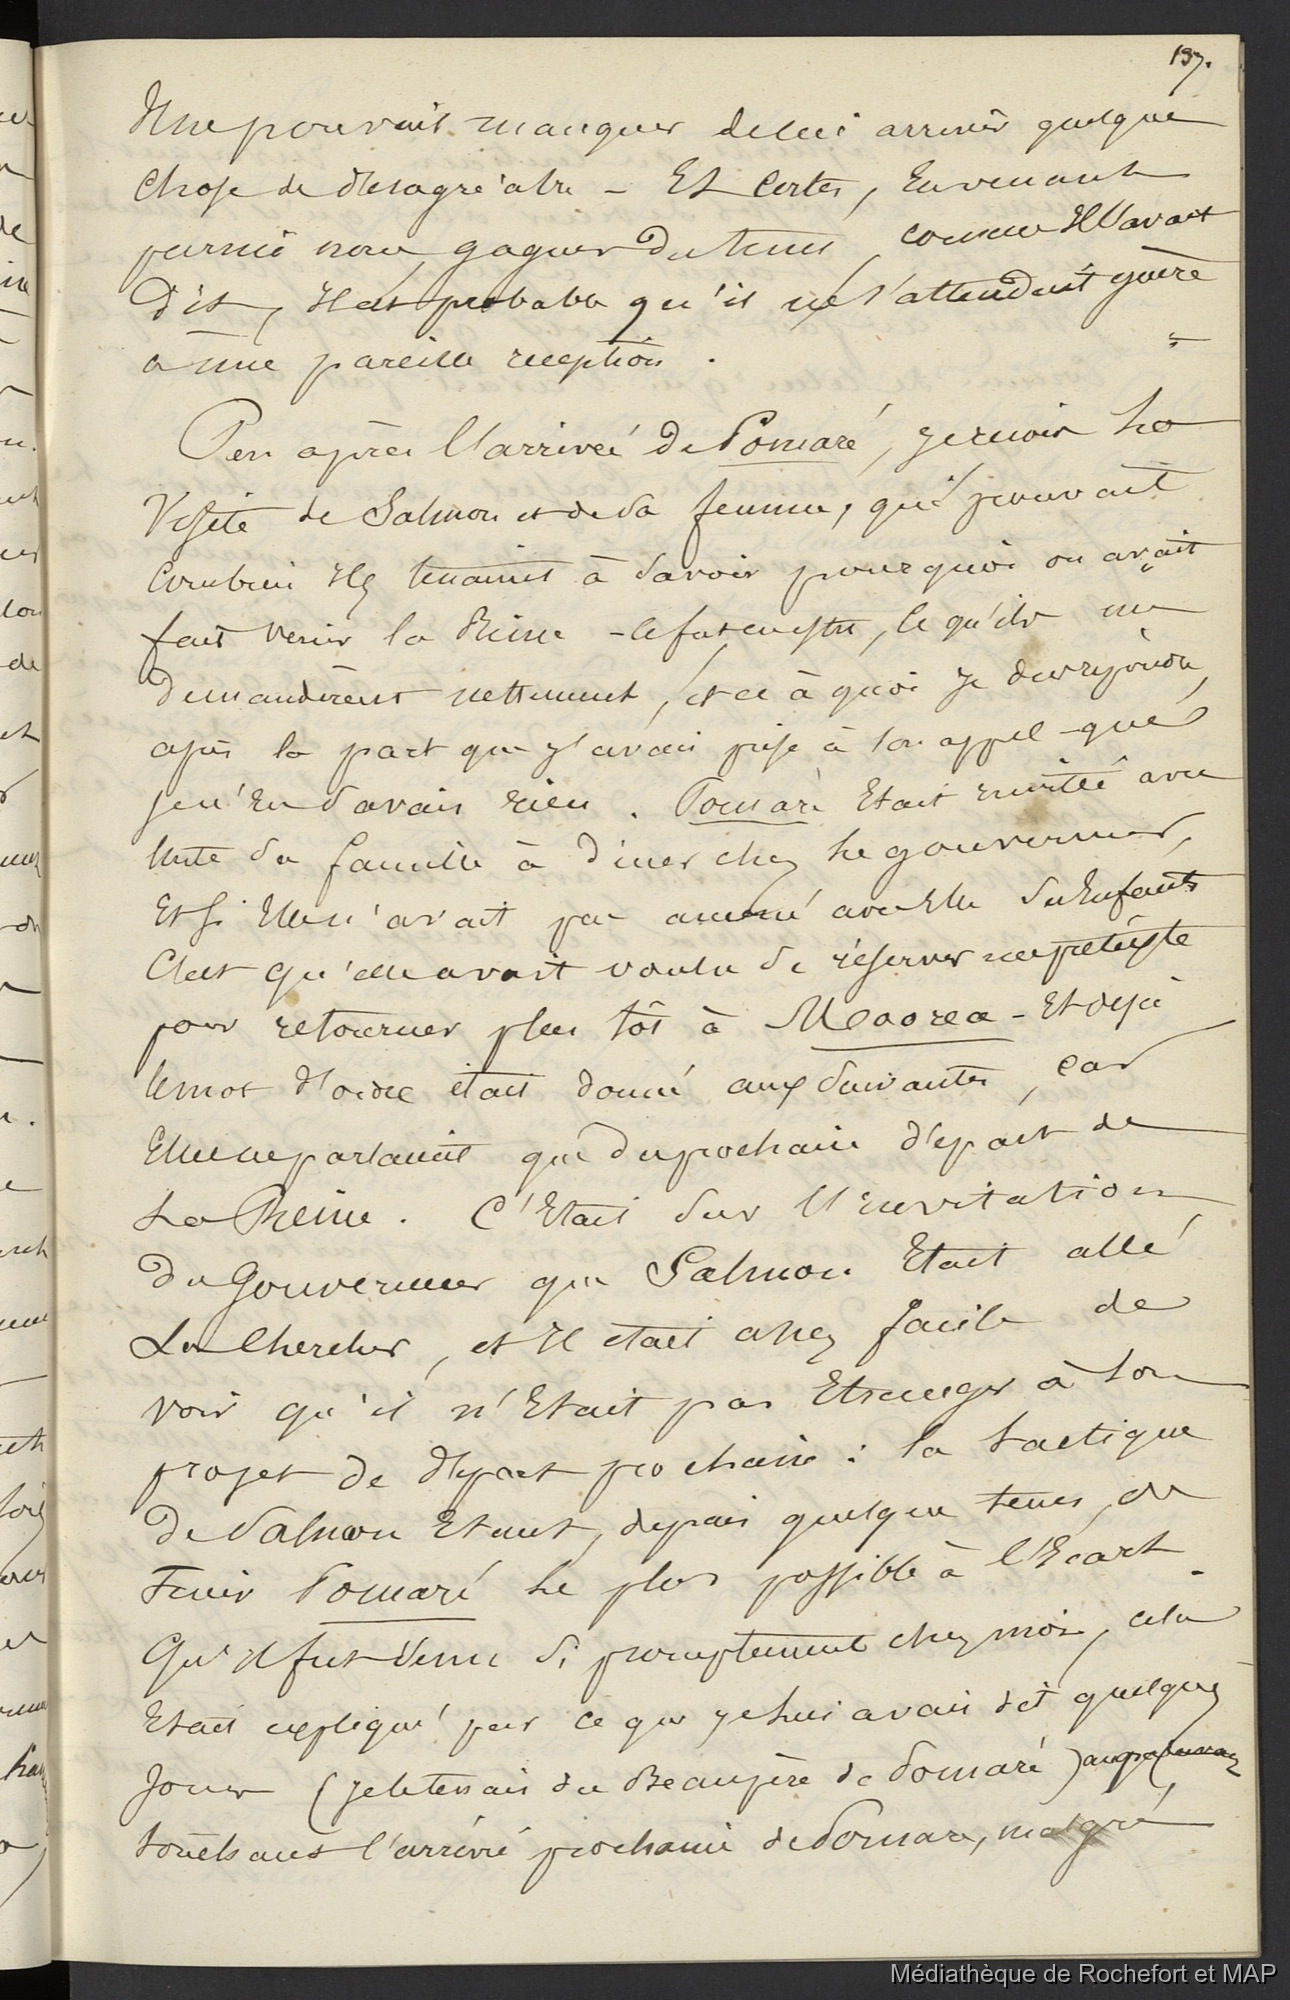 197.
Il ne pouvait manquer de lui arriver quelque
chose de désagréable – Et certes, En venant
parmi nous gagner du tems, comme Il l'avait
dit, Il est probable qu'il ne s'attendait guère
a une pareille reception.
Peu après l'arrivée de Pomaré, je reçois La
Visite de Salmon et de sa femme, qui prouvait
Combien Ils tenaient à savoir pourquoi on avait
fait venir la Reine – ce fut en effet, ce qu'ils me
demandèrent nettement, et ce à quoi je dus répondre,
après la part que j'avais prise à son appel – que
je n'En savais rien. Pomaré Etait invitée avec
toute sa famille à diner chez Le gouverneur,
Et si Elle n'avait pas amené avec Elle ses Enfants
C'est qu'elle avait voulu se réserver un prétexte
pour retourner plus tôt à Moorea – Et déjà
le mot d'ordre était donné aux suivantes, car
Elles ne parlaient que du prochain départ de
La Reine. C'Etait sur l'Invitation
du Gouverneur que Salmon Etait allé
La Chercher, et Il etait assez facile de
voir qu'il n'Etait pas Etranger à son
projet de départ prochain : la tactique
de Salmon Etant, depuis quelque tems, de
Tenir Pomaré Le plus possible à l'Ecart.
Qu'Il fut venu si promptement chez moi, cela
Etait expliqué par ce que je Lui avais dit quelques
Jours (je le tenais du Beaupère de Pomaré) auparavant
touchant l'arrivée prochaine de Pomaré, malgré
Médiathèque de Rochefort et MAP